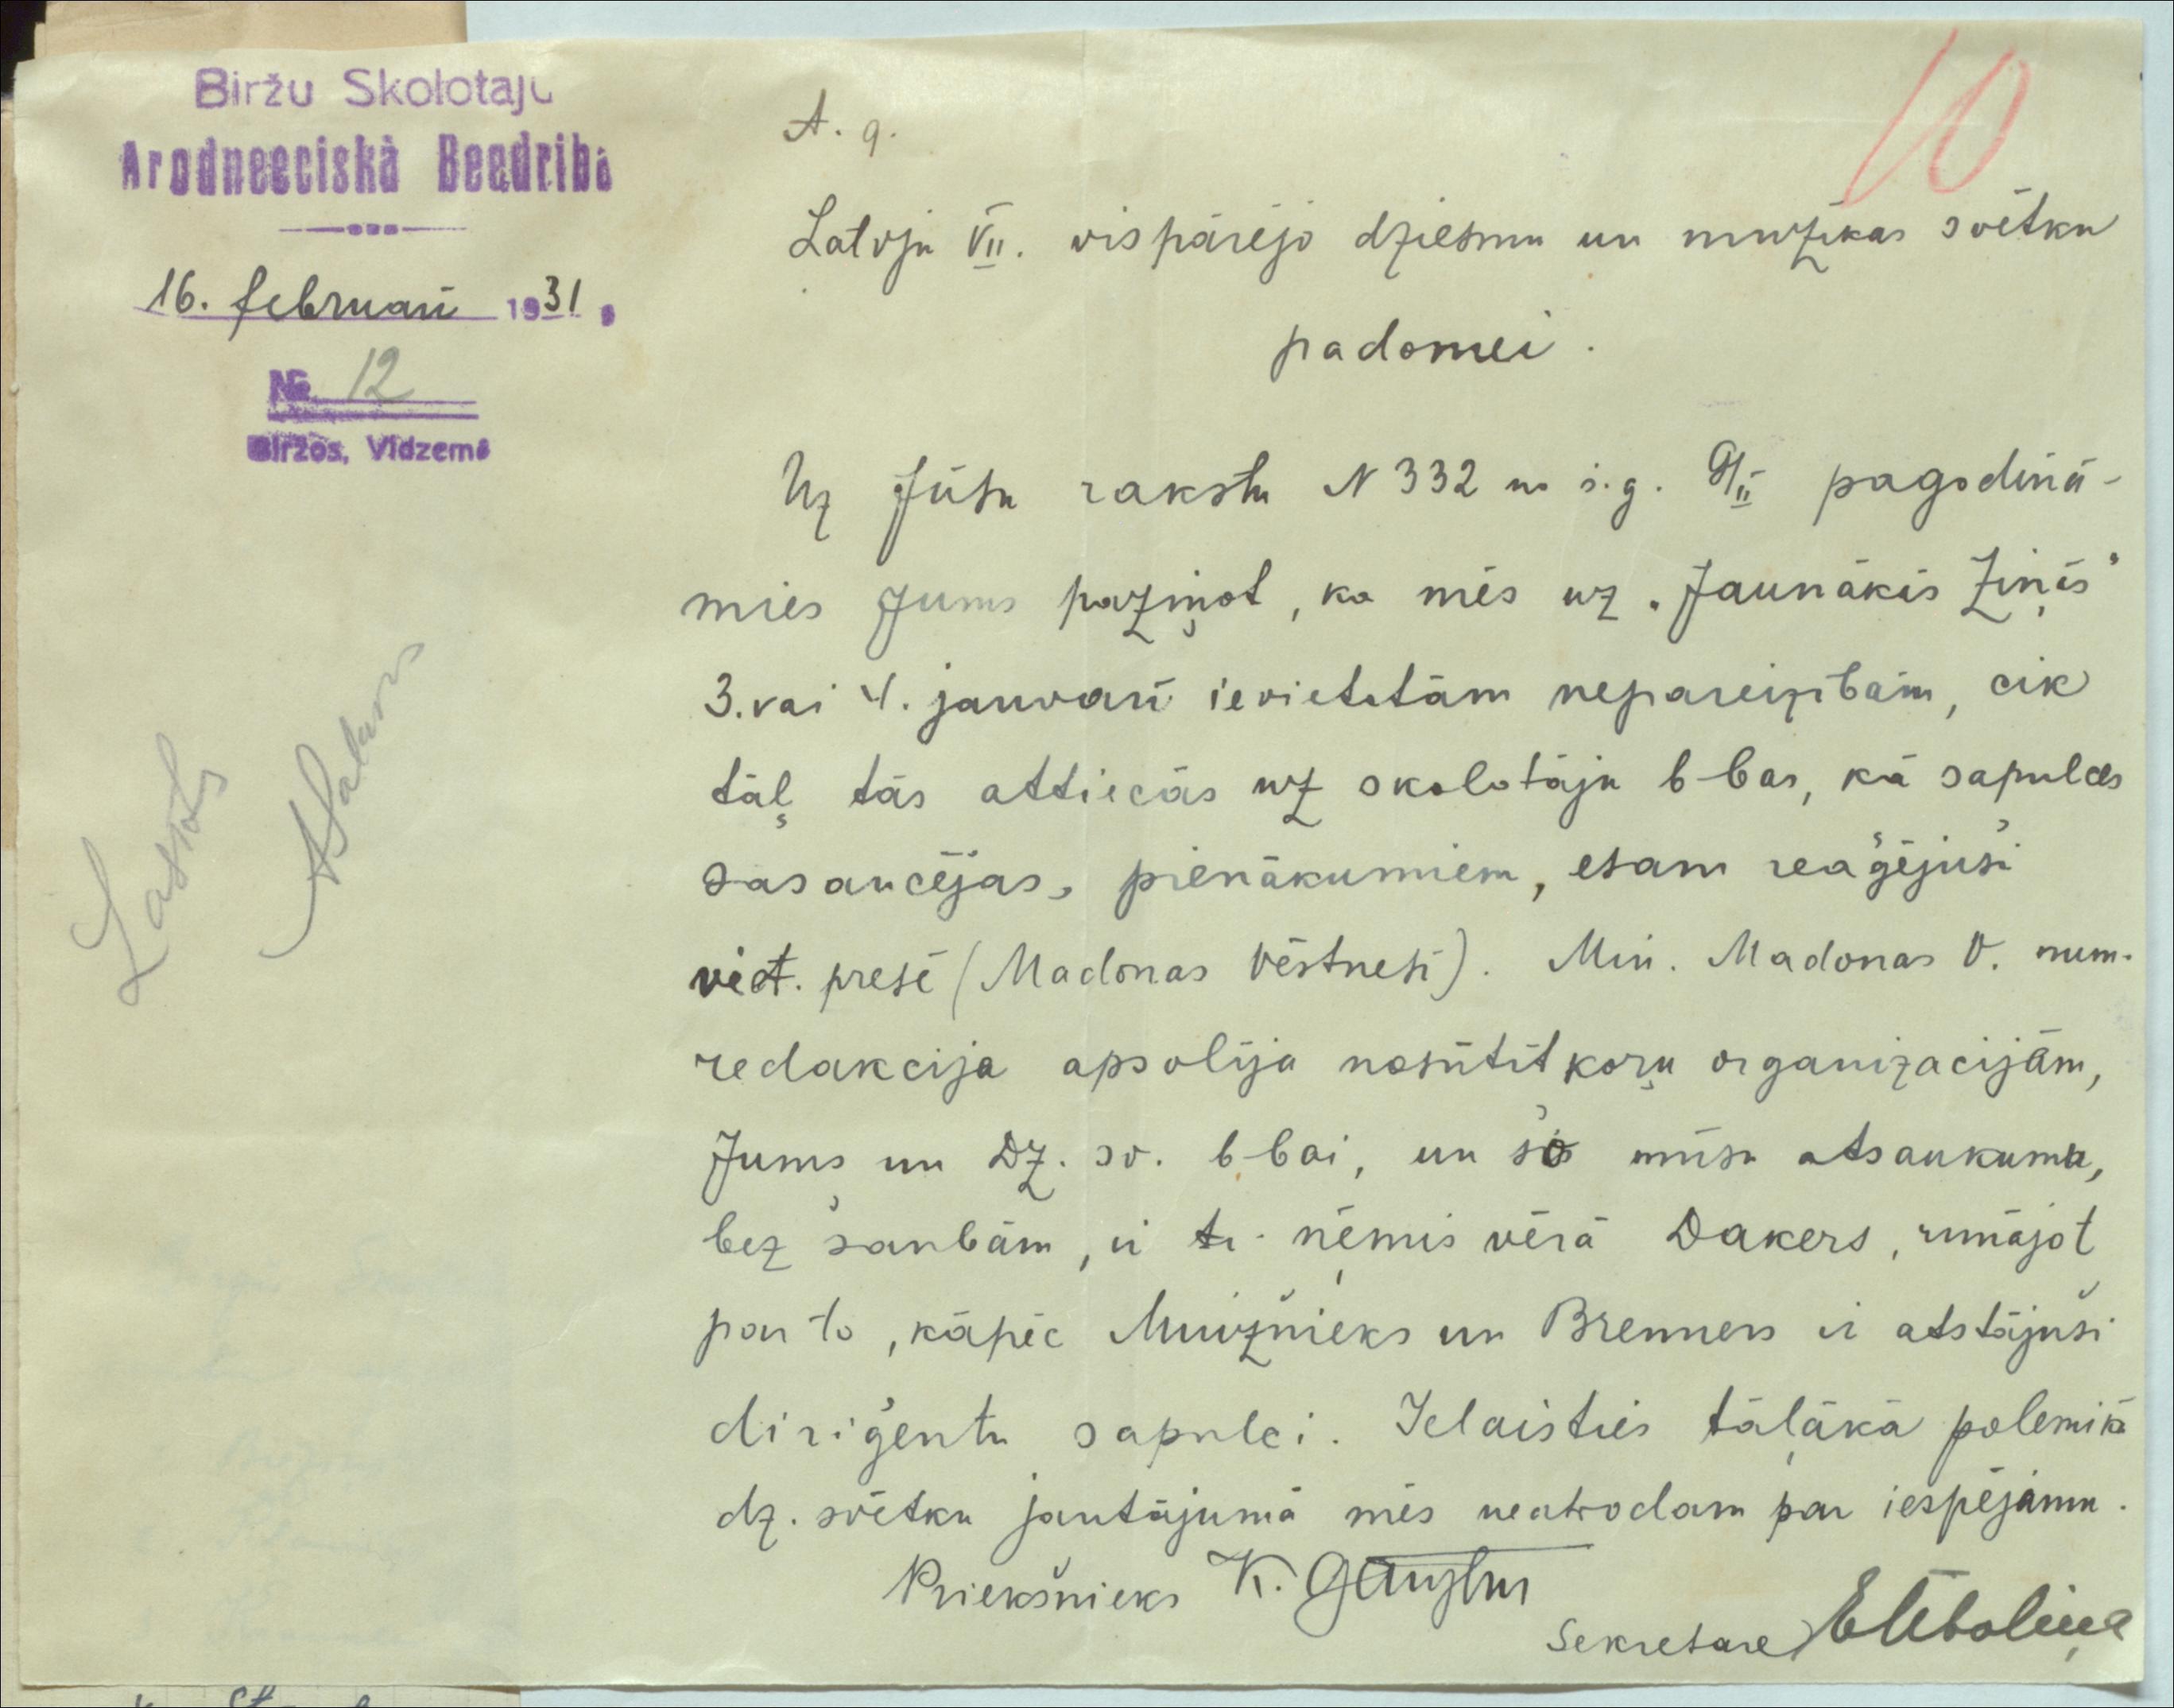 Biržu Skolotaju
Arodneeciskā Beedribā
16. februarī 1931.
№ 12
Biržos, Vidzemē
10
A. g.
Latvju VII. vispārējo dziesmu un muzikas svētku
padomei.
Uz Jūsu rakstu N 332 no š.g. 9/II pagodinā-
mies Jums paziņot, ka mēs uz „Jaunākās Ziņās"
3. vai 4. janvarī ievietotām nepareizībām, cik
tāļ tās attiecās uz skolotāju b-bas, kā sapulces
sasaucējas, pienākumiem, esam reaģējuši
viet. presē (Madonas Vēstnesī). Min. Madonas V. num.
redakcija apsolīja nosūtīt koŗu organizacijām,
Jums un Dz. sv. b-bai, un šo mūsu atsaukumu,
bez šaubām, ir ņēmis vērā Dakers, runājot
par to, kāpēc Muižnieks un Brenners ir atstājuši
diriģentu sapulci. Ielaisties tāļākā polemikā
dz. svētku jautājumā mēs neatrodam par iespējamu.
Priekšnieks K.
Sekretare